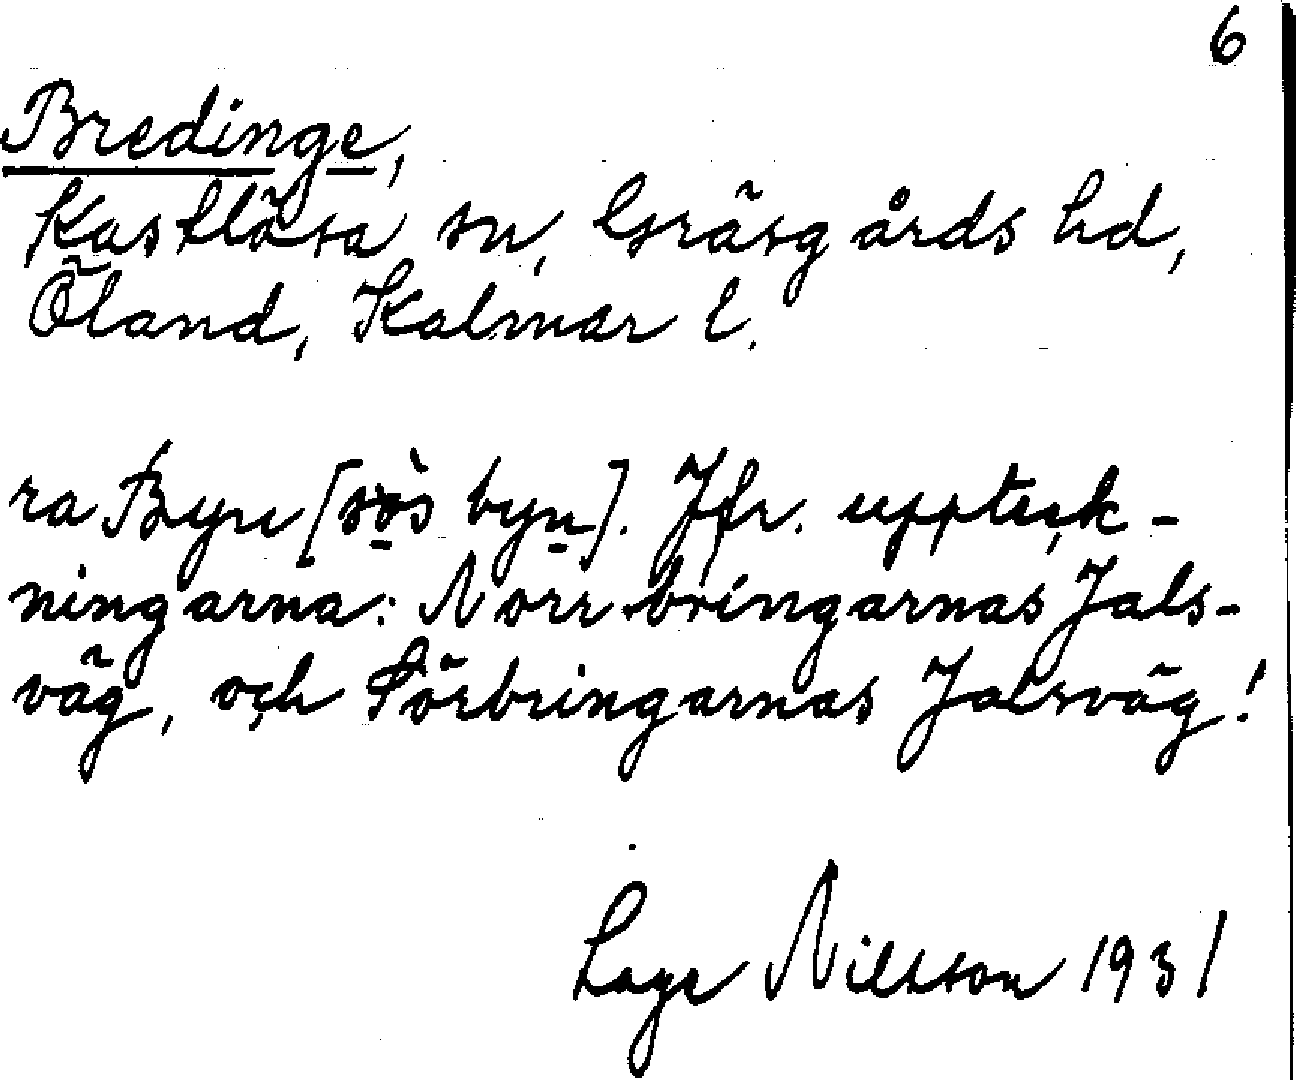 6
Bredinge,
Kastlösa sn, Gräsgårds hd,
Öland, Kalmar l.
ra Byn [sös byn]. Jfr. uppteck-
ningarna: Norrbringarnas Jals-
väg, och Sörbringarnas Jalsväg!
Lage Nilsson 1931